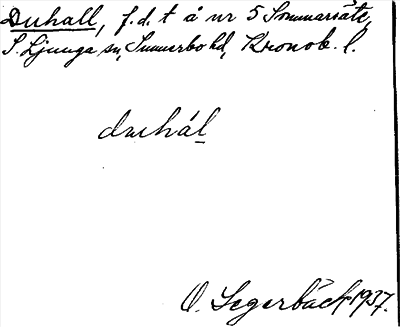 Duhall, f.d. t å nr 5 Sommarsäte,
S. Ljunga sn, Sunnerbo hd, Kronob. l.
duhál
O. Segerbäck 1937.